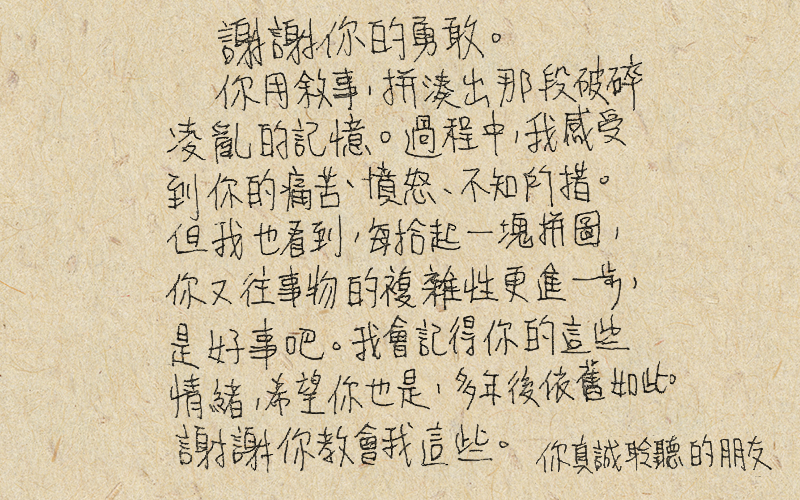 謝謝你的勇敢。
你用敘事,拼湊出那段破碎
凌亂的記憶。過程中,我感受
到你的痛苦、憤怒、不知所措。
但我也看到,每拾起一塊拼圖,
你又往事物的複雜性更進一步,
是好事吧。我會記得你的這些
情緒,希望你也是,多年後依舊如此。
謝謝你教會我這些。
你真誠聆聽的朋友